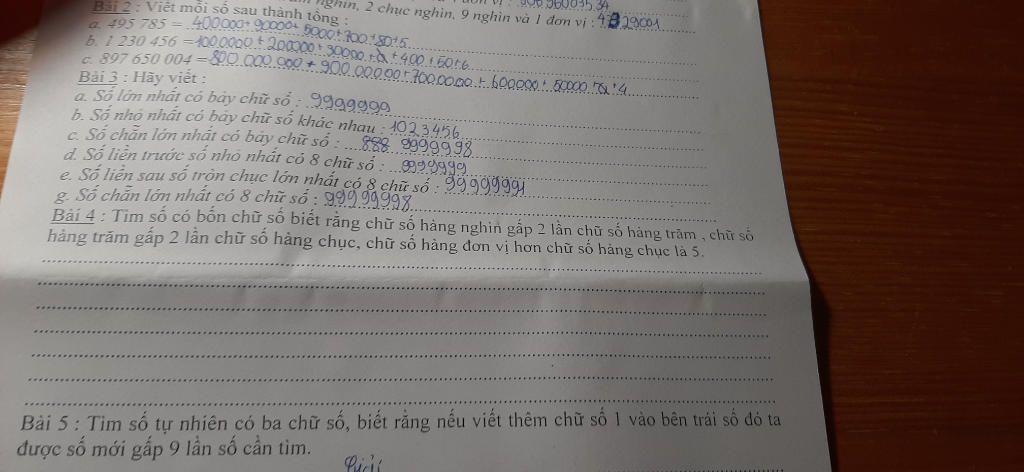 nghìn, 2 chục nghìn, 9 nghìn và 1 đơn vị :
Bài 2 : Viết mỗi số sau thành tổng :
a. 495 785 = 400000+90000+5000+700+80+5
b. 1 230 456 = 1000000 + 200000 + 30000 + 400 + 50+6
c. 897 650 004 = 800.000.000 + 900.00000+7000000 + 600000+ 50000 + 4
Bài 3 : Hãy viết :
a. Số lớn nhất có bảy chữ số : 9999999
b. Số nhỏ nhất có bảy chữ số khác nhau : 1023456
c. Số chẵn lớn nhất có bảy chữ số : 888 9999998
d. Số liền trước số nhỏ nhất có 8 chữ số : 9999999
e. Số liền sau số tròn chục lớn nhất có 8 chữ số : 99999991
g. Số chẵn lớn nhất có 8 chữ số : 99999998
Bài 4 : Tìm số có bốn chữ số biết rằng chữ số hàng nghìn gấp 2 lần chữ số hàng trăm , chữ số
hàng trăm gấp 2 lần chữ số hàng chục, chữ số hàng đơn vị hơn chữ số hàng chục là 5.
Bài 5 : Tìm số tự nhiên có ba chữ số, biết rằng nếu viết thêm chữ số 1 vào bên trái số đó ta
được số mới gấp 9 lần số cần tìm.